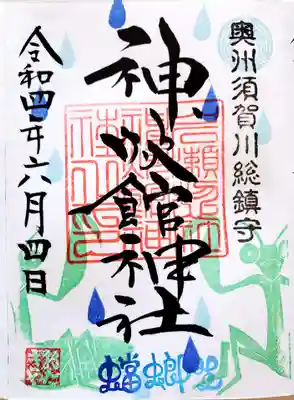 奥州須賀川総鎮守
神炊館神社
令和四年六月四日
蟷螂生